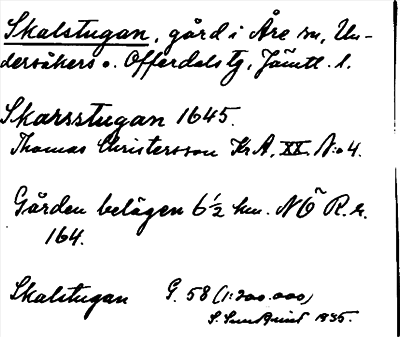 Skalstugan, gård i Åre sn, Un-
dersåkers o. Offerdals tg, Jämtl. l.
Skarsstugan 1645.
Thomas Christersson Kr A. XX. N:o 4.
Gården belägen 6½ km. NÖ R.r.
164.
Skalstugan G. 58 (1:200.000)
1935.